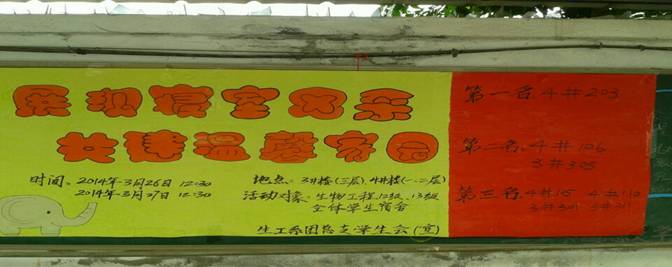 展现寝室风采
共建温馨家园
时间：2014年3月26日 12:30
2014年3月27日 12:30
地点：3#楼(三层)、4#楼(一、二层)
活动对象：生物工程12级、13级
全体学生宿舍
生工系团总支学生会(宣)
第一名、4#203
第二名、4#106
3#305
第三名、4#115 4#110
3#301 3#311